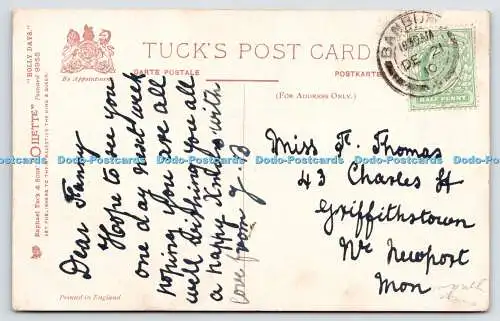 TUCK'S POST CARD
CARTE POSTALE
POSTKARTE
(FOR ADDRESS ONLY.)
By Appointment
"BOLLY DAYS."
Postcard 9955
Raphael Tuck & Sons' "OILETTE"
ART PUBLISHERS TO THEIR MAJESTIES THE KING & QUEEN.
Printed in England
BANBURY
DE 21
10
HALF PENNY
Dear Fanny
Hope to see you
one day next week
hoping you are all
well wishing you all
a happy Xmas with
love from J. B
Miss F. Thomas
43 Charles St
Griffithstown
Nr Newport
Mon
Postcards Postcards Postcards Postcards Postcards Postcards